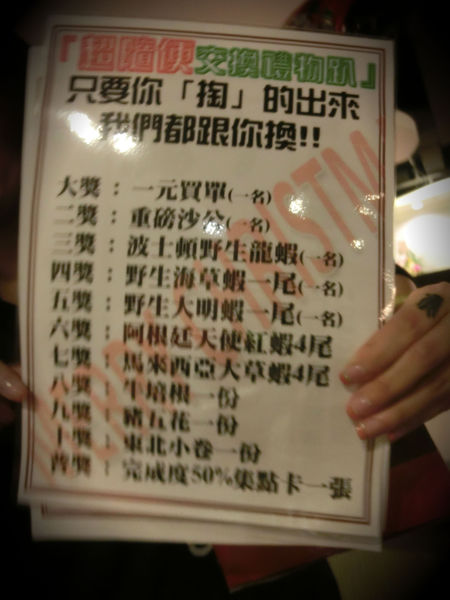 「超隨便交換禮物趴」
只要你「掏」的出來
我們都跟你換!!
大獎：一元買單(一名)
二獎：重磅沙公(一名)
三獎：波士頓野生龍蝦(一名)
四獎：野生海草蝦一尾(一名)
五獎：野生大明蝦一尾(一名)
六獎：阿根廷天使紅蝦4尾
七獎：馬來西亞大草蝦4尾
八獎：牛培根一份
九獎：豬五花一份
十獎：東北小卷一份
普獎：完成度50%集點卡一張